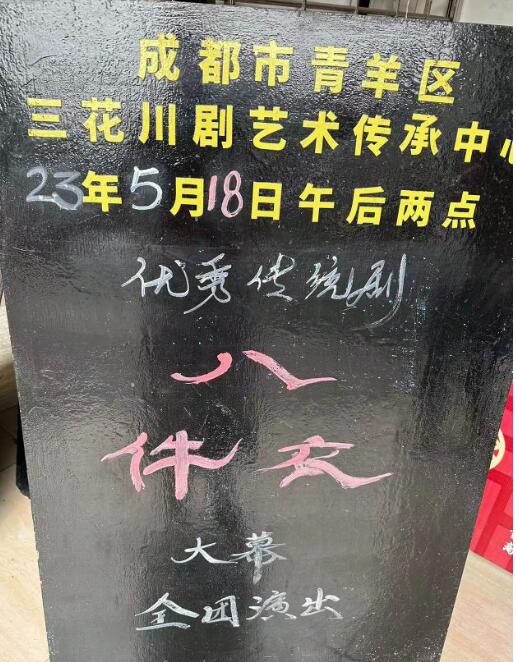 成都市青羊区
三花川剧艺术传承中心
23年5月18日午后两点
优秀传统剧
八
件衣
大幕
全团演出